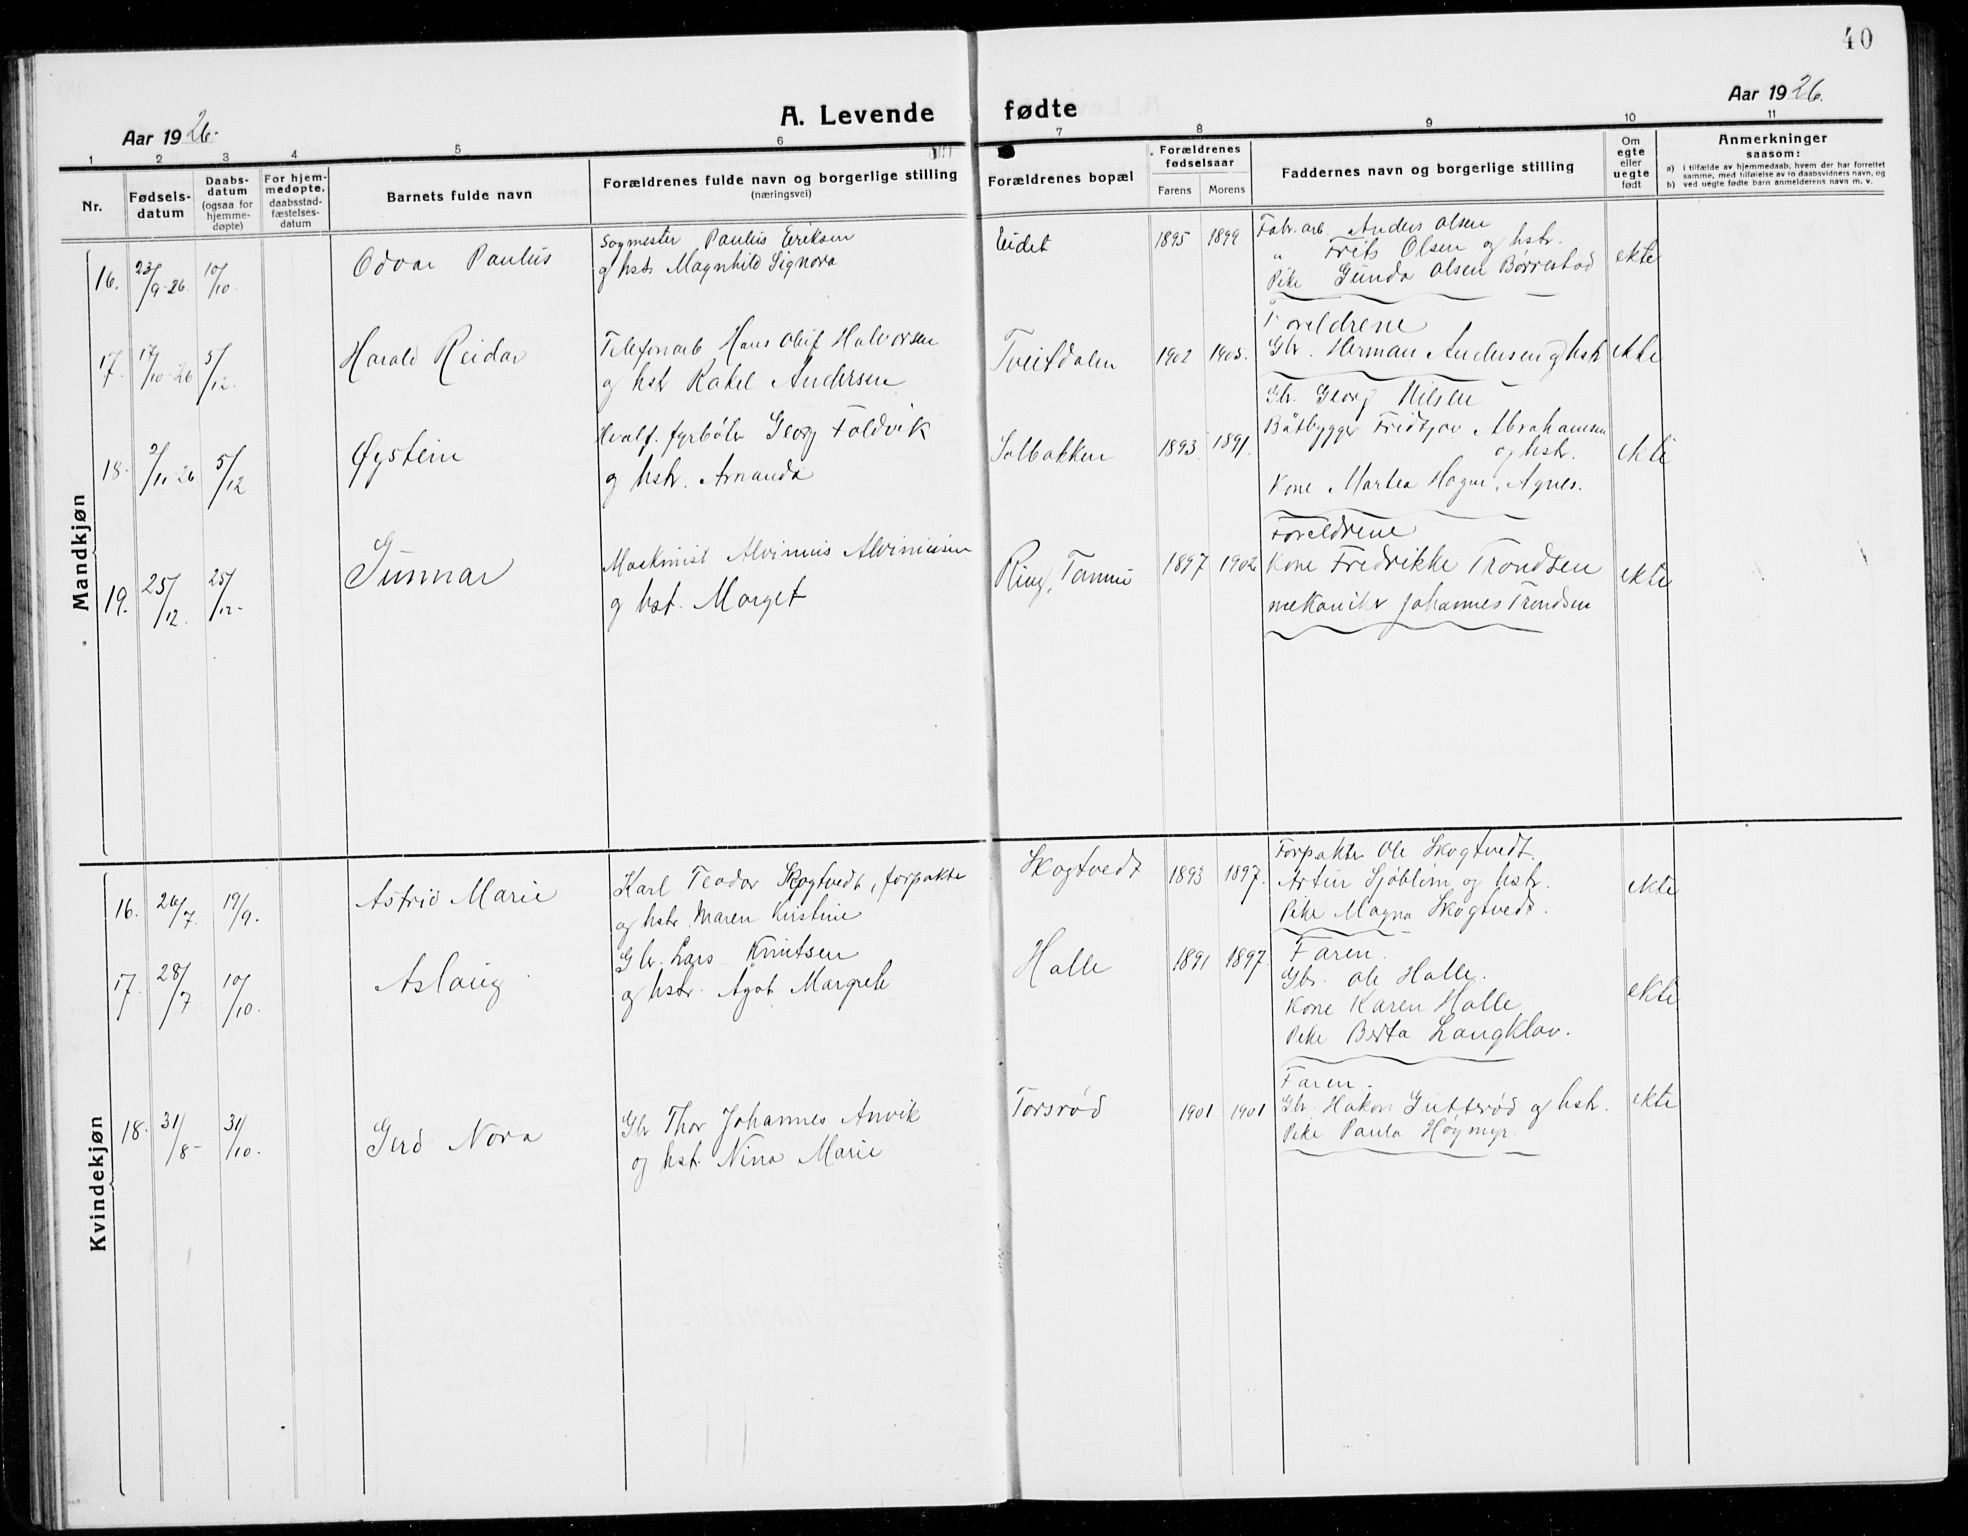 40
A. Levende fødte
Aar 1926.
Aar 1926.
1 2 3 4 5 6 7 8 9 10 11
Nr.
Fødsels-
datum
Daabs-
datum
(ogsaa for
hjemme-
døpte)
For hjem-
medøpte.
daabsstad-
fæstelses-
datum
Barnets fulde navn
Forældrenes fulde navn og borgerlige stilling
(næringsvei)
Forældrenes bopæl
Forældrenes
fødselsaar
Farens Morens
Faddernes navn og borgerlige stilling
Om
egte
eller
uegte
født
Anmerkninger
saasom:
a) i tilfælde av hjemmedaab, hvem der har forrettet
samme, med tilføielse av to daabsvidners navn, og
b) ved uegte fødte barn anmelderens navn m. v.
Mandkjøn
16. 23/9-26. 10/10. Odvar Paulus
Sagmester Paulus Eriksen
og hstr Magnhild Signora
Eidet 1895 1899
Fabr.arb Anders Olsen
" Frits Olsen og hstr.
Pike Gunda Olsen Børrestad
ekte
17. 17/10-26 5/12. Harald Reidar
Telefonarb Hans Oluf Halvorsen
og hstr Rakel Andersen
Tveitdalen 1902 1905.
Foreldrene
Gbr. Herman Andersen og hstr
Gbr. Georg Nilsen
ekte
18. 2/11-26 5/12 Øystein
Hvalf. fyrbøter Georg Foldvik
og hstr. Amanda
Solbakken 1893 1891.
Båtbygger Fridtjov Abrahamsen
og hstr.
Kone Martea Hagen, Agnes.
ekte
19. 25/12. 25/12- Gunnar
Maskinist Alvinius Alviniusen
og hst. Marget
Ring, 1897 1902
Foreldrene
Kone Fredrikke Trondsen
mekaniker Johannes Trondsen
ekte
Kvindekjøn
16. 26/7. 19/9. Astrid Marie
Karl Teodor Skogtvedt, forpakter
og hstr Maren Kirstine
Skogtvedt 1893 1897.
Forpakter Ole Skogtvedt.
Artur Sjöblom og hstr.
Pike Magna Skogtvedt.
ekte
17. 28/7 10/10. Aslaug
Gbr. Lars Knutsen
og hstr. Agot Margrete
Halle 1891 1897.
Faren.
Gbr. Ole Halle.
Kone Karen Halle
Pike Berta Langklov.
ekte
18. 31/8- 31/10. Gerd Nora
Gbr Thor Johannes Anvik
og hst. Nina Marie
Torsrød 1901 1901
Faren.
Gbr. Hakon Gutterød og hstr.
Pike Paula Høgmyr.
ekte